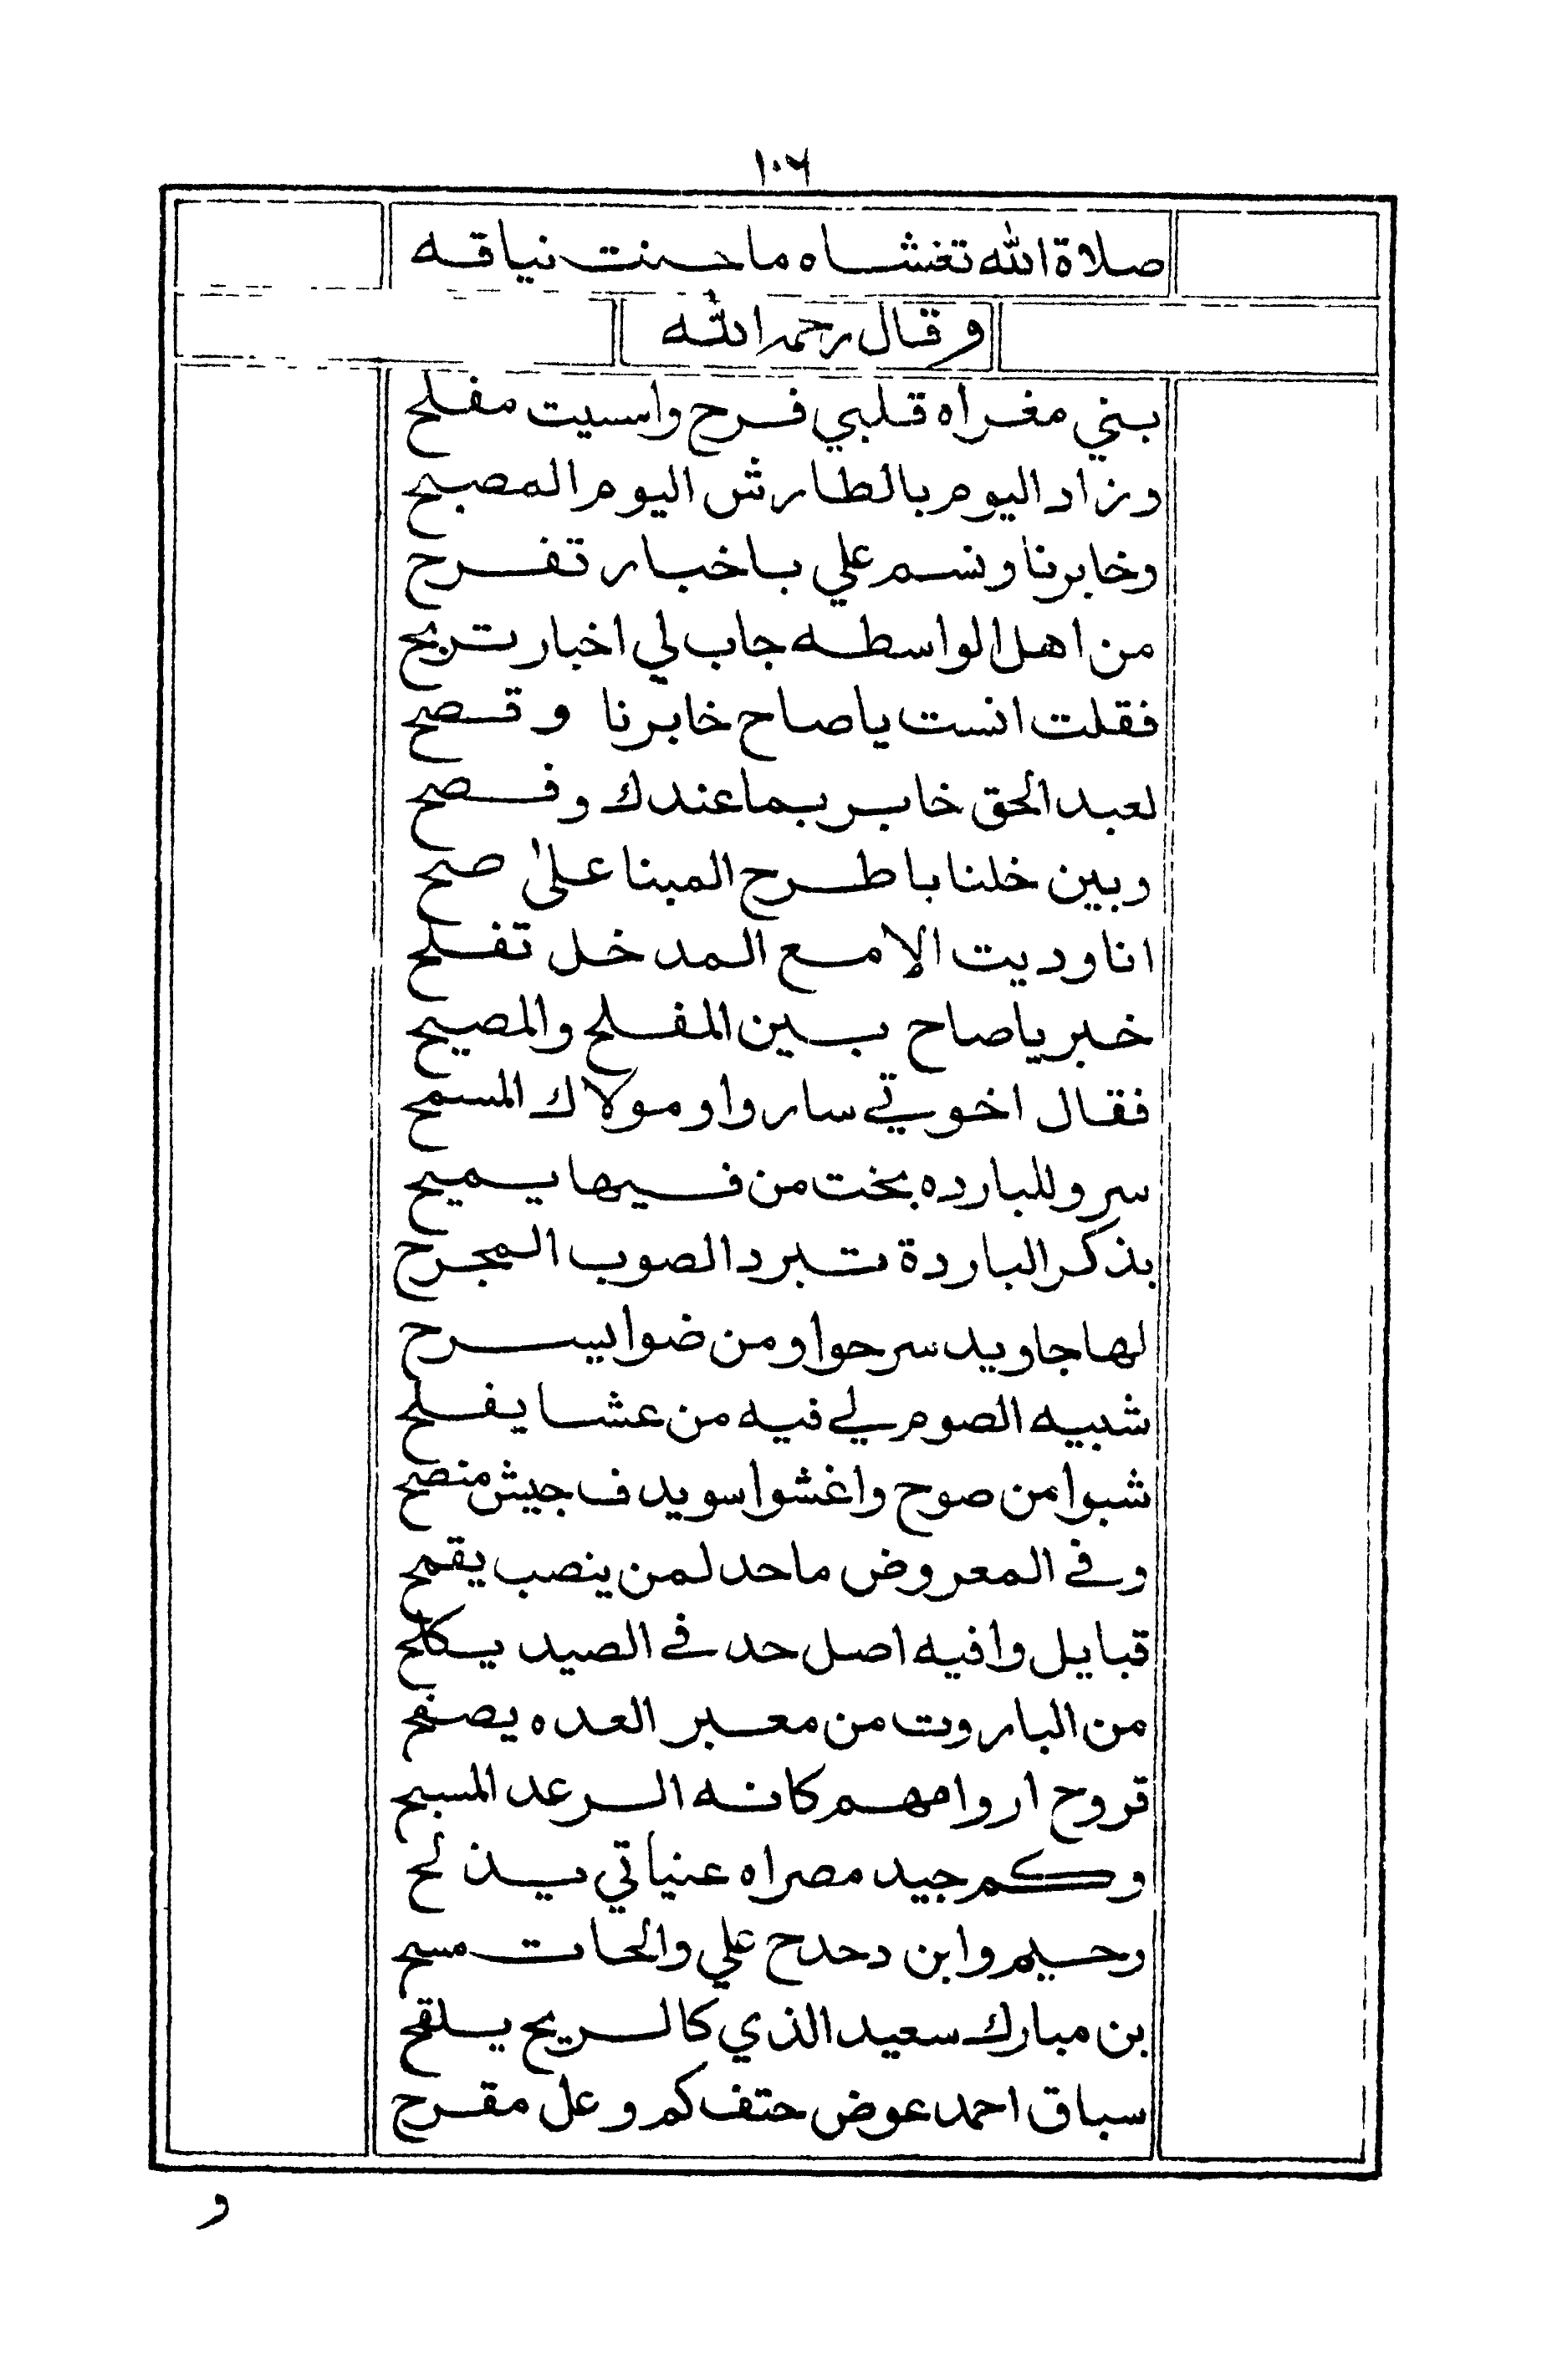 ١٠٦
صلاة الله تغشاه ما حنت نياقه
وقال رحمه الله
بني مغراه قلبي فرح واسيت مفلح
وزاد اليوم بالطارش اليوم المصبح
وخابرنا ونسم علي باخبار تفرح
من اهل الواسطه جاب لي اخبار تريح
فقلت انست ياصاح خابرنا وقصح
لعبد الحق خابر بما عندك وفصح
وبين خلنا با طرح المبنا على صح
انا وديت الامع المدخل تفلح
خبر ياصاح بين المفلح والمصيح
فقال اخوتي ساروا ومولاك المسمح
سرو للبارده بخت من فيها يميح
بذكر الباردة تبرد الصوب المجرح
لها جاويد سرحوا ومن ضوا بيسرح
شبيه الصوم لي فيه من عشا يفلح
شبوا من صوح واغشوا سويدف جيش منصح
وفي المعروض ماحد لمن ينصب يقمح
قبايل وافيه اصل حد في الصيد يكلح
من الباروت من معبر العده يصفح
قروح اروامهم كانه الرعد المسبح
وكم جيد مصراه عنياتي يذلح
وحيلم وابن دحدح علي والحات مسح
بن مبارك سعيد الذي كالريح يلقح
سباق احمد عوض حتف كم وعل مقرح
و